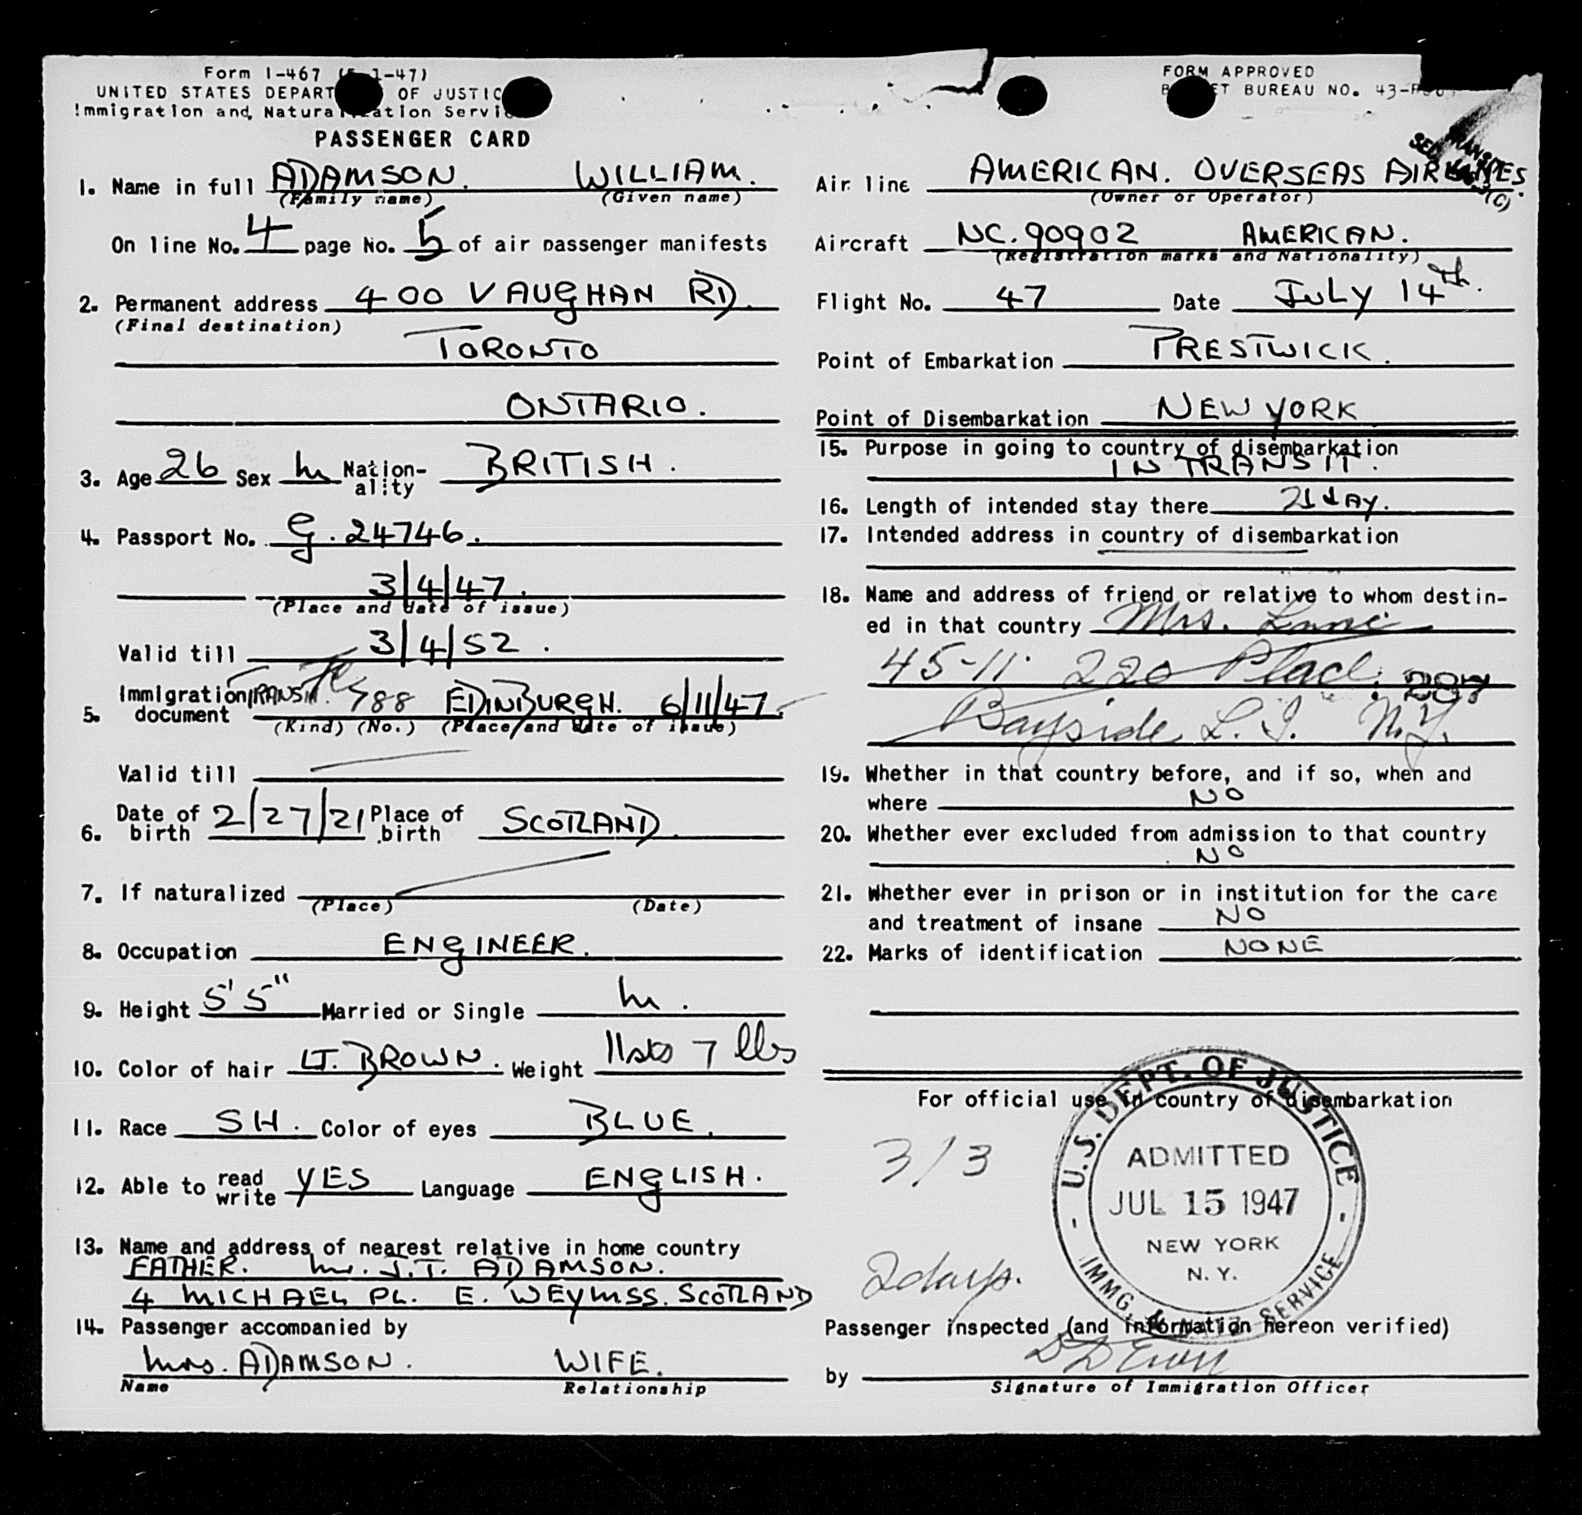 Form I-467 ( -1-47)
UNITED STATES DEPART OF JUSTIC
Immigration and Naturalization Servi
PASSENGER CARD
1. Name in full ADAMSON. WILLIAM.
(Family name) (Given name)
On line No. 4 page No. 5 of air passenger manifests
2. Permanent address 400 VAUGHAN RD.
(Final destination)
TORONTO
ONTARIO.
3. Age 26 Sex M Nation-ality BRITISH.
4. Passport No. G.24746.
3/4/47.
(Place and date of issue)
Valid till 3/4/52.
5. Immigration document TRANSIT. 788 EDINBURGH. 6/11/47
(Kind) (No.) (Place and date of issue)
Valid till
6. Date of birth 2/27/21 Place of birth SCOTLAND.
7. If naturalized
(Place) (Date)
8. Occupation ENGINEER.
9. Height 5'5" Married or Single M.
10. Color of hair LT. BROWN. Weight 11sts 7 lbs
11. Race SH. Color of eyes BLUE.
12. Able to read write YES Language ENGLISH.
13. Name and address of nearest relative in home country
FATHER. Mr. J.T. ADAMSON.
4 MICHAEL PL. E. WEYMSS. SCOTLAND
14. Passenger accompanied by
Mrs. ADAMSON. WIFE.
Name Relationship
FORM APPROVED
B ET BUREAU NO. 43-R
Air line AMERICAN. OVERSEAS AIRLINES.
(Owner or Operator)
Aircraft NC.90902 AMERICAN.
(Registration marks and Nationality)
Flight No. 47 Date JULY 14th.
Point of Embarkation PRESTWICK.
Point of Disembarkation NEW YORK
15. Purpose in going to country of disembarkation
IN TRANSIT.
16. Length of intended stay there DAY.
17. Intended address in country of disembarkation
18. Name and address of friend or relative to whom destin-
ed in that country Mrs.
45-11. 220 Place. 287
Bayside L.I. N.Y.
19. Whether in that country before, and if so, when and
where NO
20. Whether ever excluded from admission to that country
NO
21. Whether ever in prison or in institution for the care
and treatment of insane NO
22. Marks of identification NONE
For official use in country of disembarkation
3/3
U.S. DEPT. OF JUSTICE
ADMITTED
JUL 15 1947
NEW YORK
N. Y.
IMMG. & NATZ. SERVICE
2 days.
Passenger inspected (and information hereon verified)
by
Signature of Immigration Officer